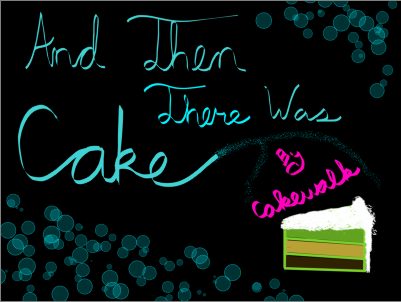 And Then
There Was
Cake
By
Cakewalk